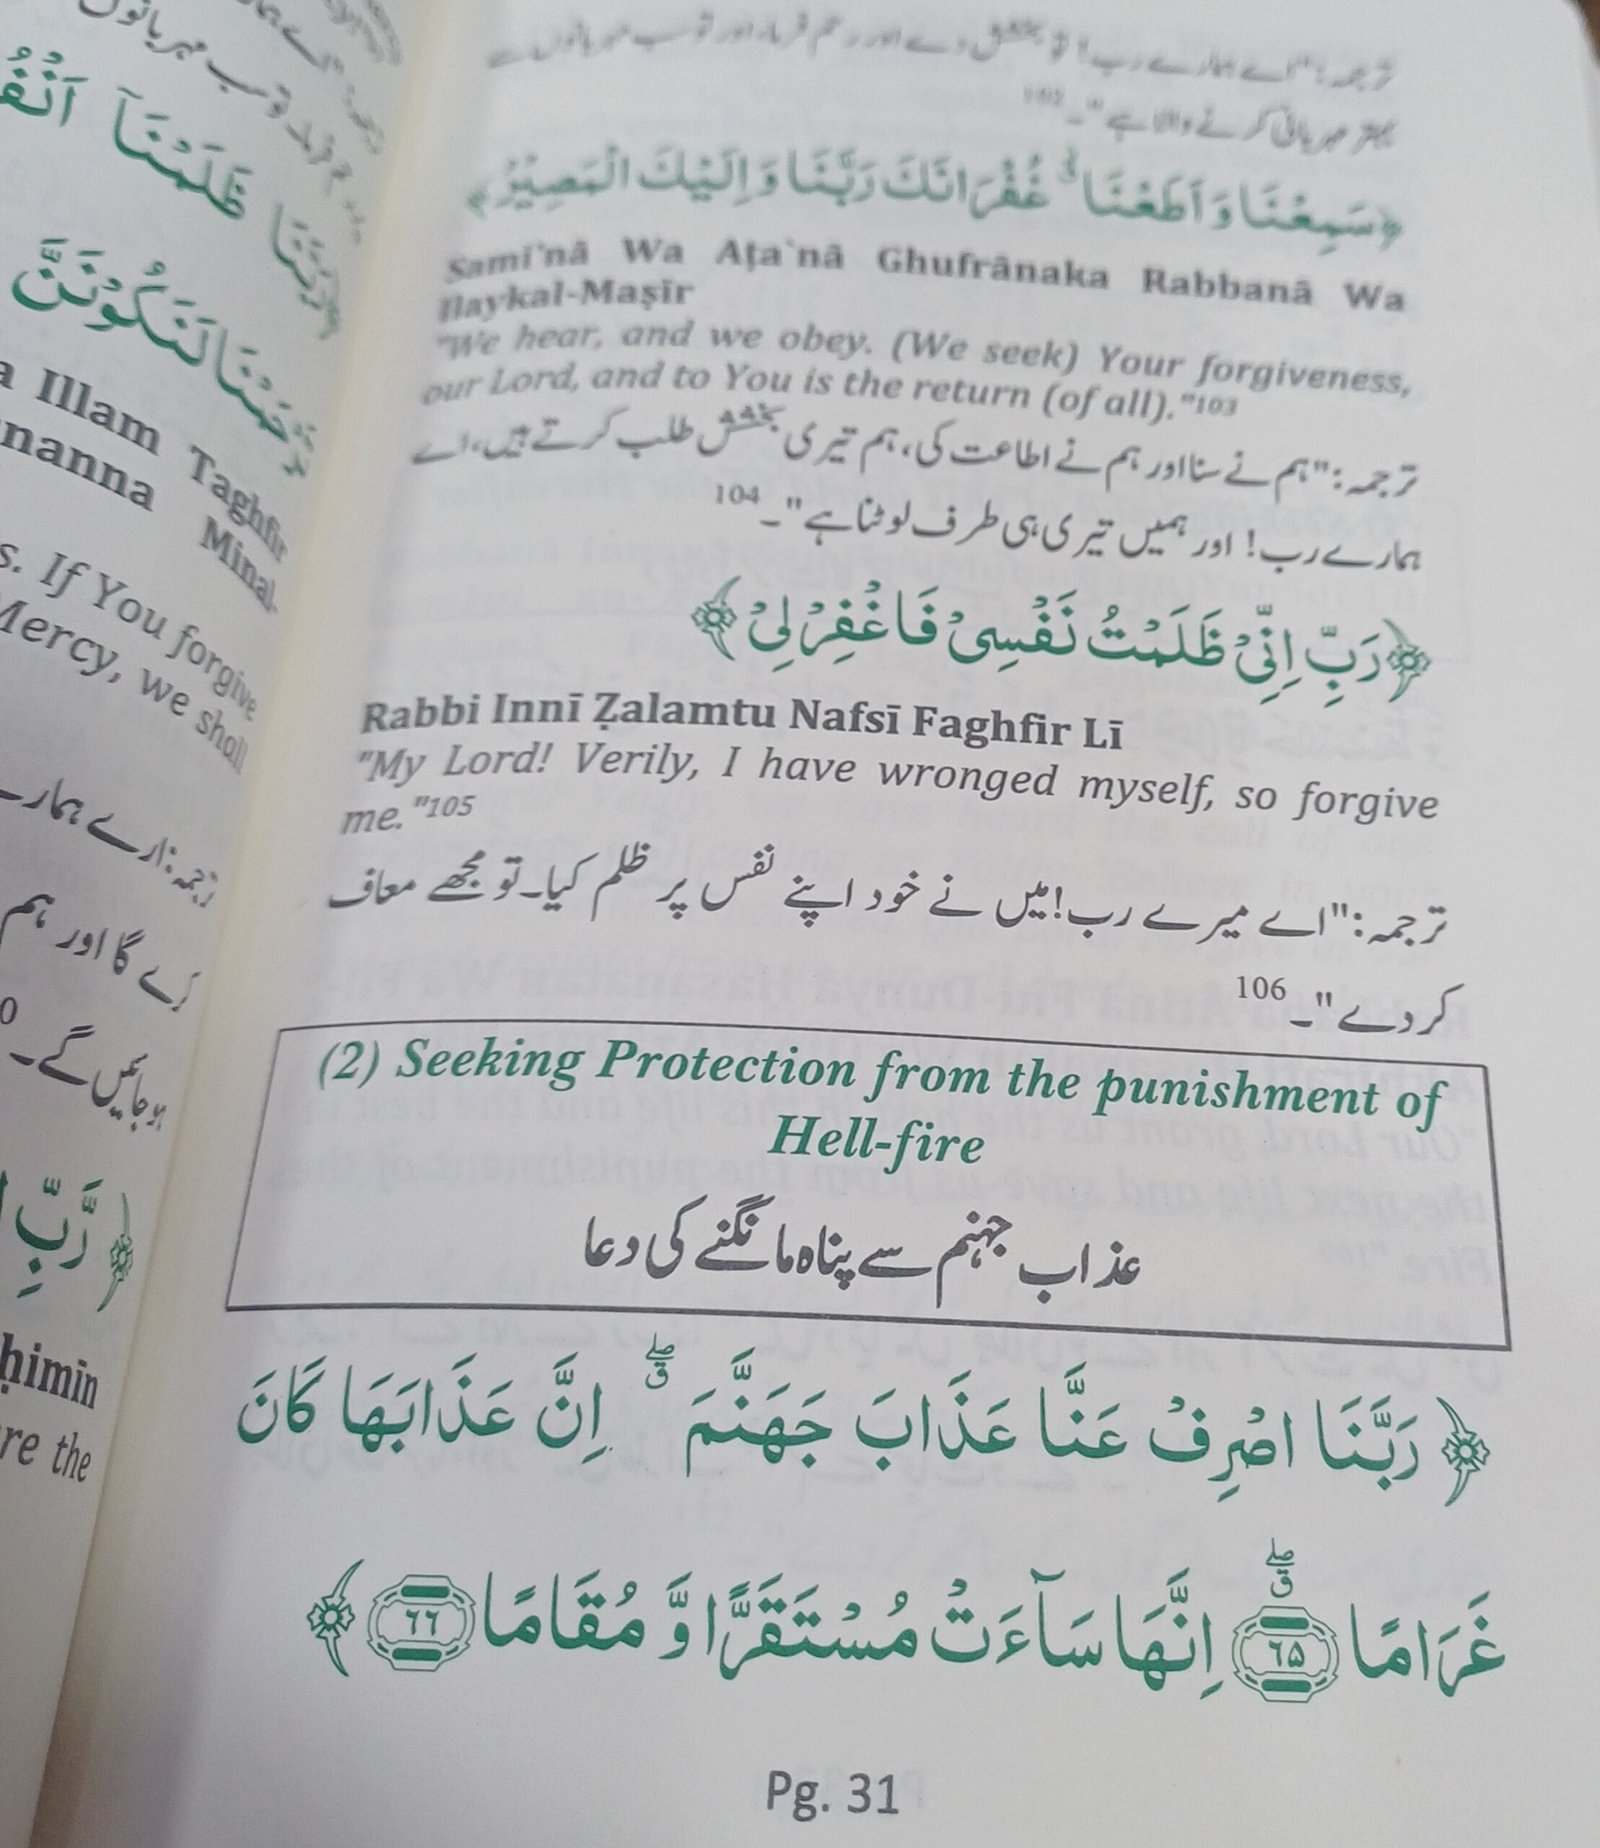 ترجمہ:"اے ہمارے رب! تو بخش دے اور رحم فرما، اور تو سب مہربانوں سے
بہتر مہربانی کرنے والا ہے"۔102
﴿سَمِعْنَا وَاَطَعْنَا ۗ غُفْرَانَكَ رَبَّنَا وَاِلَيْكَ الْمَصِيْرُ﴾
Sami'nā Wa Aṭa`nā Ghufrānaka Rabbanā Wa
Ilaykal-Maṣīr
"We hear, and we obey. (We seek) Your forgiveness,
our Lord, and to You is the return (of all)."103
ترجمہ:"ہم نے سنا اور ہم نے اطاعت کی، ہم تیری بخشش طلب کرتے ہیں، اے
ہمارے رب! اور ہمیں تیری ہی طرف لوٹنا ہے"۔104
﴿رَبِّ اِنِّىْ ظَلَمْتُ نَفْسِىْ فَاغْفِرْ لِىْ﴾
Rabbi Innī Ẓalamtu Nafsī Faghfir Lī
"My Lord! Verily, I have wronged myself, so forgive
me."105
ترجمہ:"اے میرے رب! میں نے خود اپنے نفس پر ظلم کیا۔ تو مجھے معاف
کر دے"۔106
(2) Seeking Protection from the punishment of
Hell-fire
عذاب جہنم سے پناہ مانگنے کی دعا
﴿رَبَّنَا اصْرِفْ عَنَّا عَذَابَ جَهَنَّمَ ۖق اِنَّ عَذَابَهَا كَانَ
غَرَامًا ۖق ۶۵ اِنَّهَا سَآءَتْ مُسْتَقَرًّا وَّ مُقَامًا ۶۶﴾
Pg. 31
ظَلَمْنَآ
رَبَّنَا
لَنَكُوْنَنَّ
Illam Taghfir
nanna Minal-
s. If You forgive
Mercy, we shall
ترجمہ:اے ہمارے
گا اور ہم
ہو جائیں گے۔
﴿رَّبِّ
ḥimīn
re the